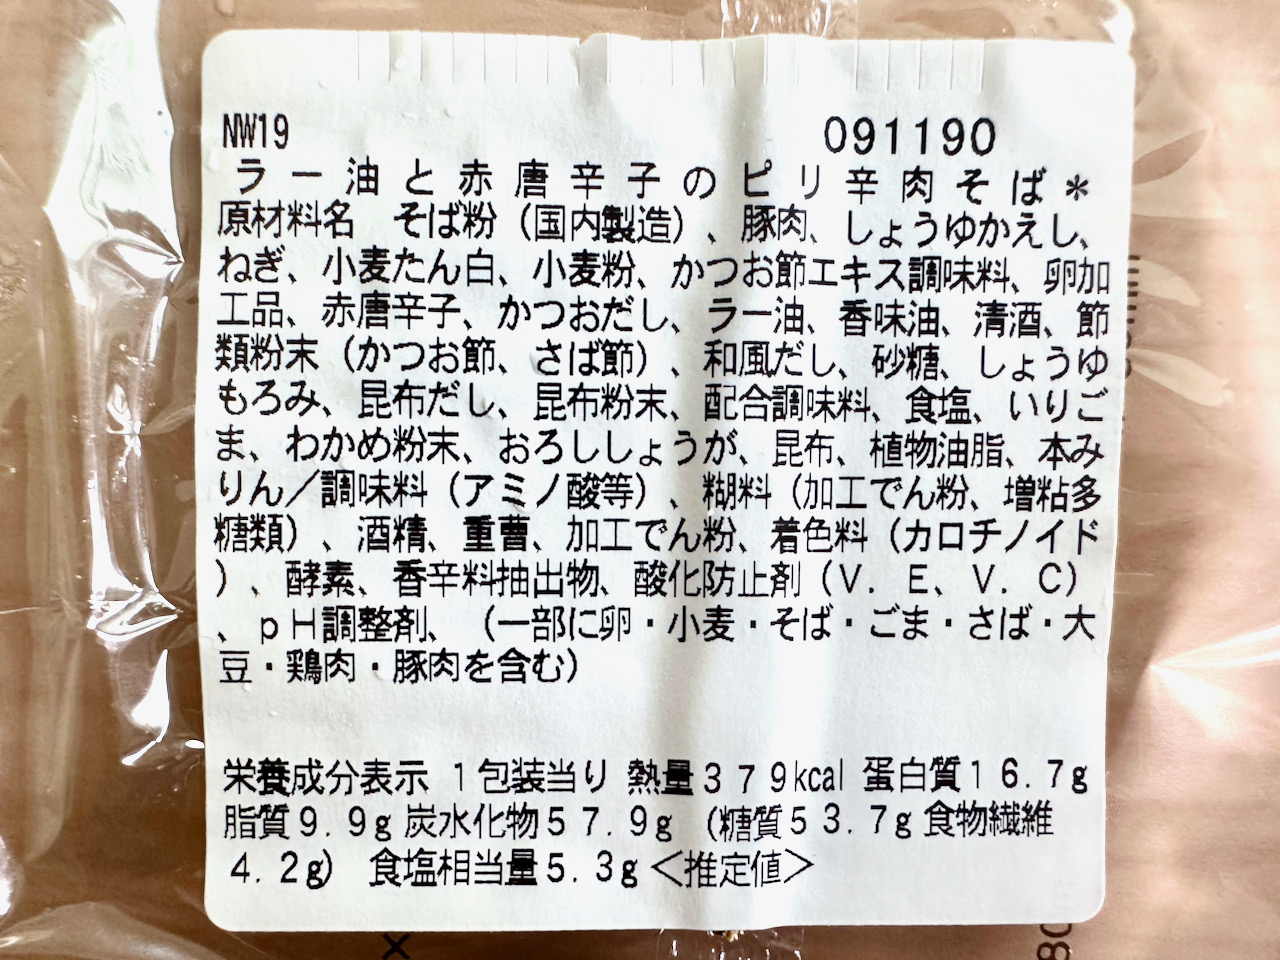 NW19 091190
ラー油と赤唐辛子のピリ辛肉そば＊
原材料名　そば粉（国内製造）、豚肉、しょうゆかえし、
ねぎ、小麦たん白、小麦粉、かつお節エキス調味料、卵加
工品、赤唐辛子、かつおだし、ラー油、香味油、清酒、節
類粉末（かつお節、さば節）、和風だし、砂糖、しょうゆ
もろみ、昆布だし、昆布粉末、配合調味料、食塩、いりご
ま、わかめ粉末、おろししょうが、昆布、植物油脂、本み
りん／調味料（アミノ酸等）、糊料（加工でん粉、増粘多
糖類）、酒精、重曹、加工でん粉、着色料（カロチノイド
）、酵素、香辛料抽出物、酸化防止剤（V．E、V．C）
、pH調整剤、（一部に卵・小麦・そば・ごま・さば・大
豆・鶏肉・豚肉を含む）
栄養成分表示 1包装当り 熱量379kcal 蛋白質16.7g
脂質9.9g 炭水化物57.9g （糖質53.7g 食物繊維
4.2g） 食塩相当量5.3g＜推定値＞